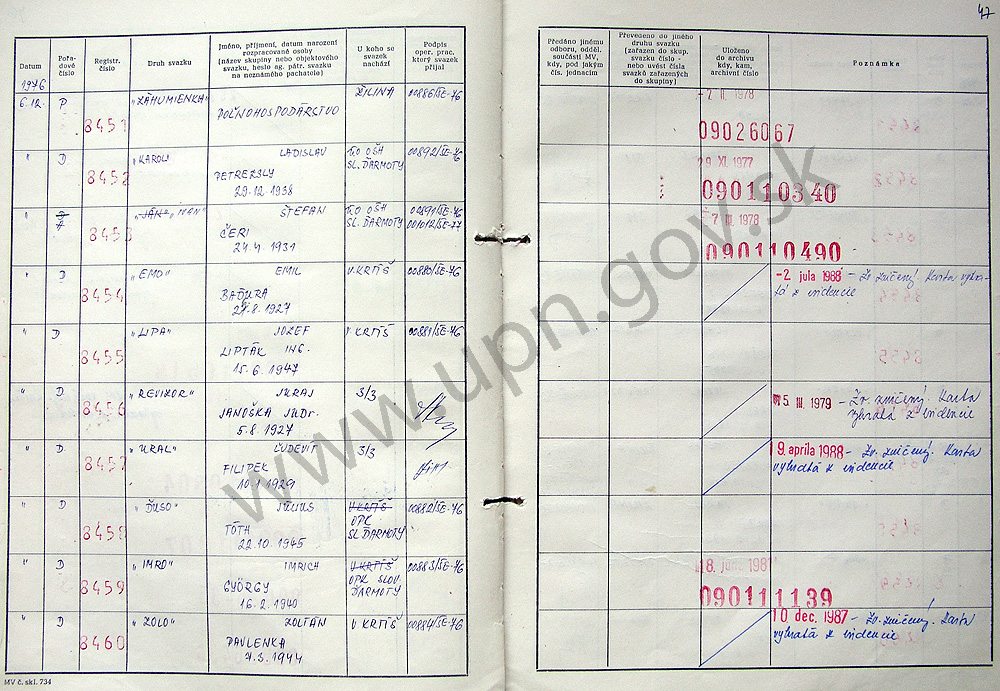 47
Datum
Pořadové číslo
Registr. číslo
Druh svazku
Jméno, příjmení, datum narození
rozpracované osoby
(název skupiny nebo objektového
svazku, heslo ag. pátr. svazku
na neznámého pachatele)
U koho se
svazek
nachází
Podpis
oper. prac.
který svazek
přijal
Předáno jinému
odboru, odděl.
součásti MV,
kdy, pod jakým
čís. jednacím
Převedeno do jiného
druhu svazku
(zařazen do skup.
svazku číslo -
nebo uvést čísla
svazků zařazených
do skupiny)
Uloženo
do archivu
kdy, kam,
archivní číslo
Poznámka
1976
6.12. P 8451 "ZÁHUMIENKA" POĽNOHOSPODÁRSTVO ŽILINA 00886/SE-76
-2. II. 1978
09026067
" D 8452 "KAROL" LADISLAV
29. 12. 1938
SL. ĎARMOTY 00892/SE-76
29. XI. 1977
090110340
" A 8453 "IVAN" ŠTEFAN
ČERI
24.4. 1931
SL. ĎARMOTY 00891/SE-76
001012/SE-77
-7. III. 1978
090110490
" D 8454 "EMO" EMIL
BAĎURA
27.8. 1927
V. KRTÍŠ 00880/SE-76
-2. júla 1988 - Zv. zničený. Karta vybratá z evidencie
" D 8455 "LIPA" JOZEF
LIPTÁK ING.
15. 6. 1947
V. KRTÍŠ 00881/SE-76
" D 8456 "REVIZOR" JURAJ
JANOŠKA JUDr.
5.8. 1927
3/3
15. III. 1979 - Zv. zničený. Karta
vybratá z evidencie
" D 8457 "URAL" ĽUDEVÍT
FILIPEK
10.1. 1929
3/3
19. apríla 1988 - Zv. zničený. Karta
vybratá z evidencie
" D 8458 "ĎUSO" JÚLIUS
TÓTH
22. 10. 1945
V. KRTÍŠ
OPK
SL. ĎARMOTY
00882/SE-76
" D 8459 "IMRO" IMRICH
GYÖRGY
16. 2. 1940
V. KRTÍŠ
OPK SLOV.
ĎARMOTY
00883/SE-76
090111139
" D 8460 "ZOLO" ZOLTÁN
PAVLENKA
7.3. 1944
V. KRTÍŠ 00884/SE-76
10. dec. 1987 - Zv. zničený. Karta
vybratá z evidencie
MV č. skl. 734
www.upn.gov.sk